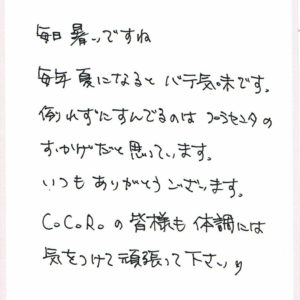 毎日暑いですね
毎年夏になるとバテ気味です。
倒れずにすんでるのはプラセンタの
おかげだと思っています。
いつもありがとうございます。
CoCoRoの皆様も体調には
気をつけて頑張って下さいり